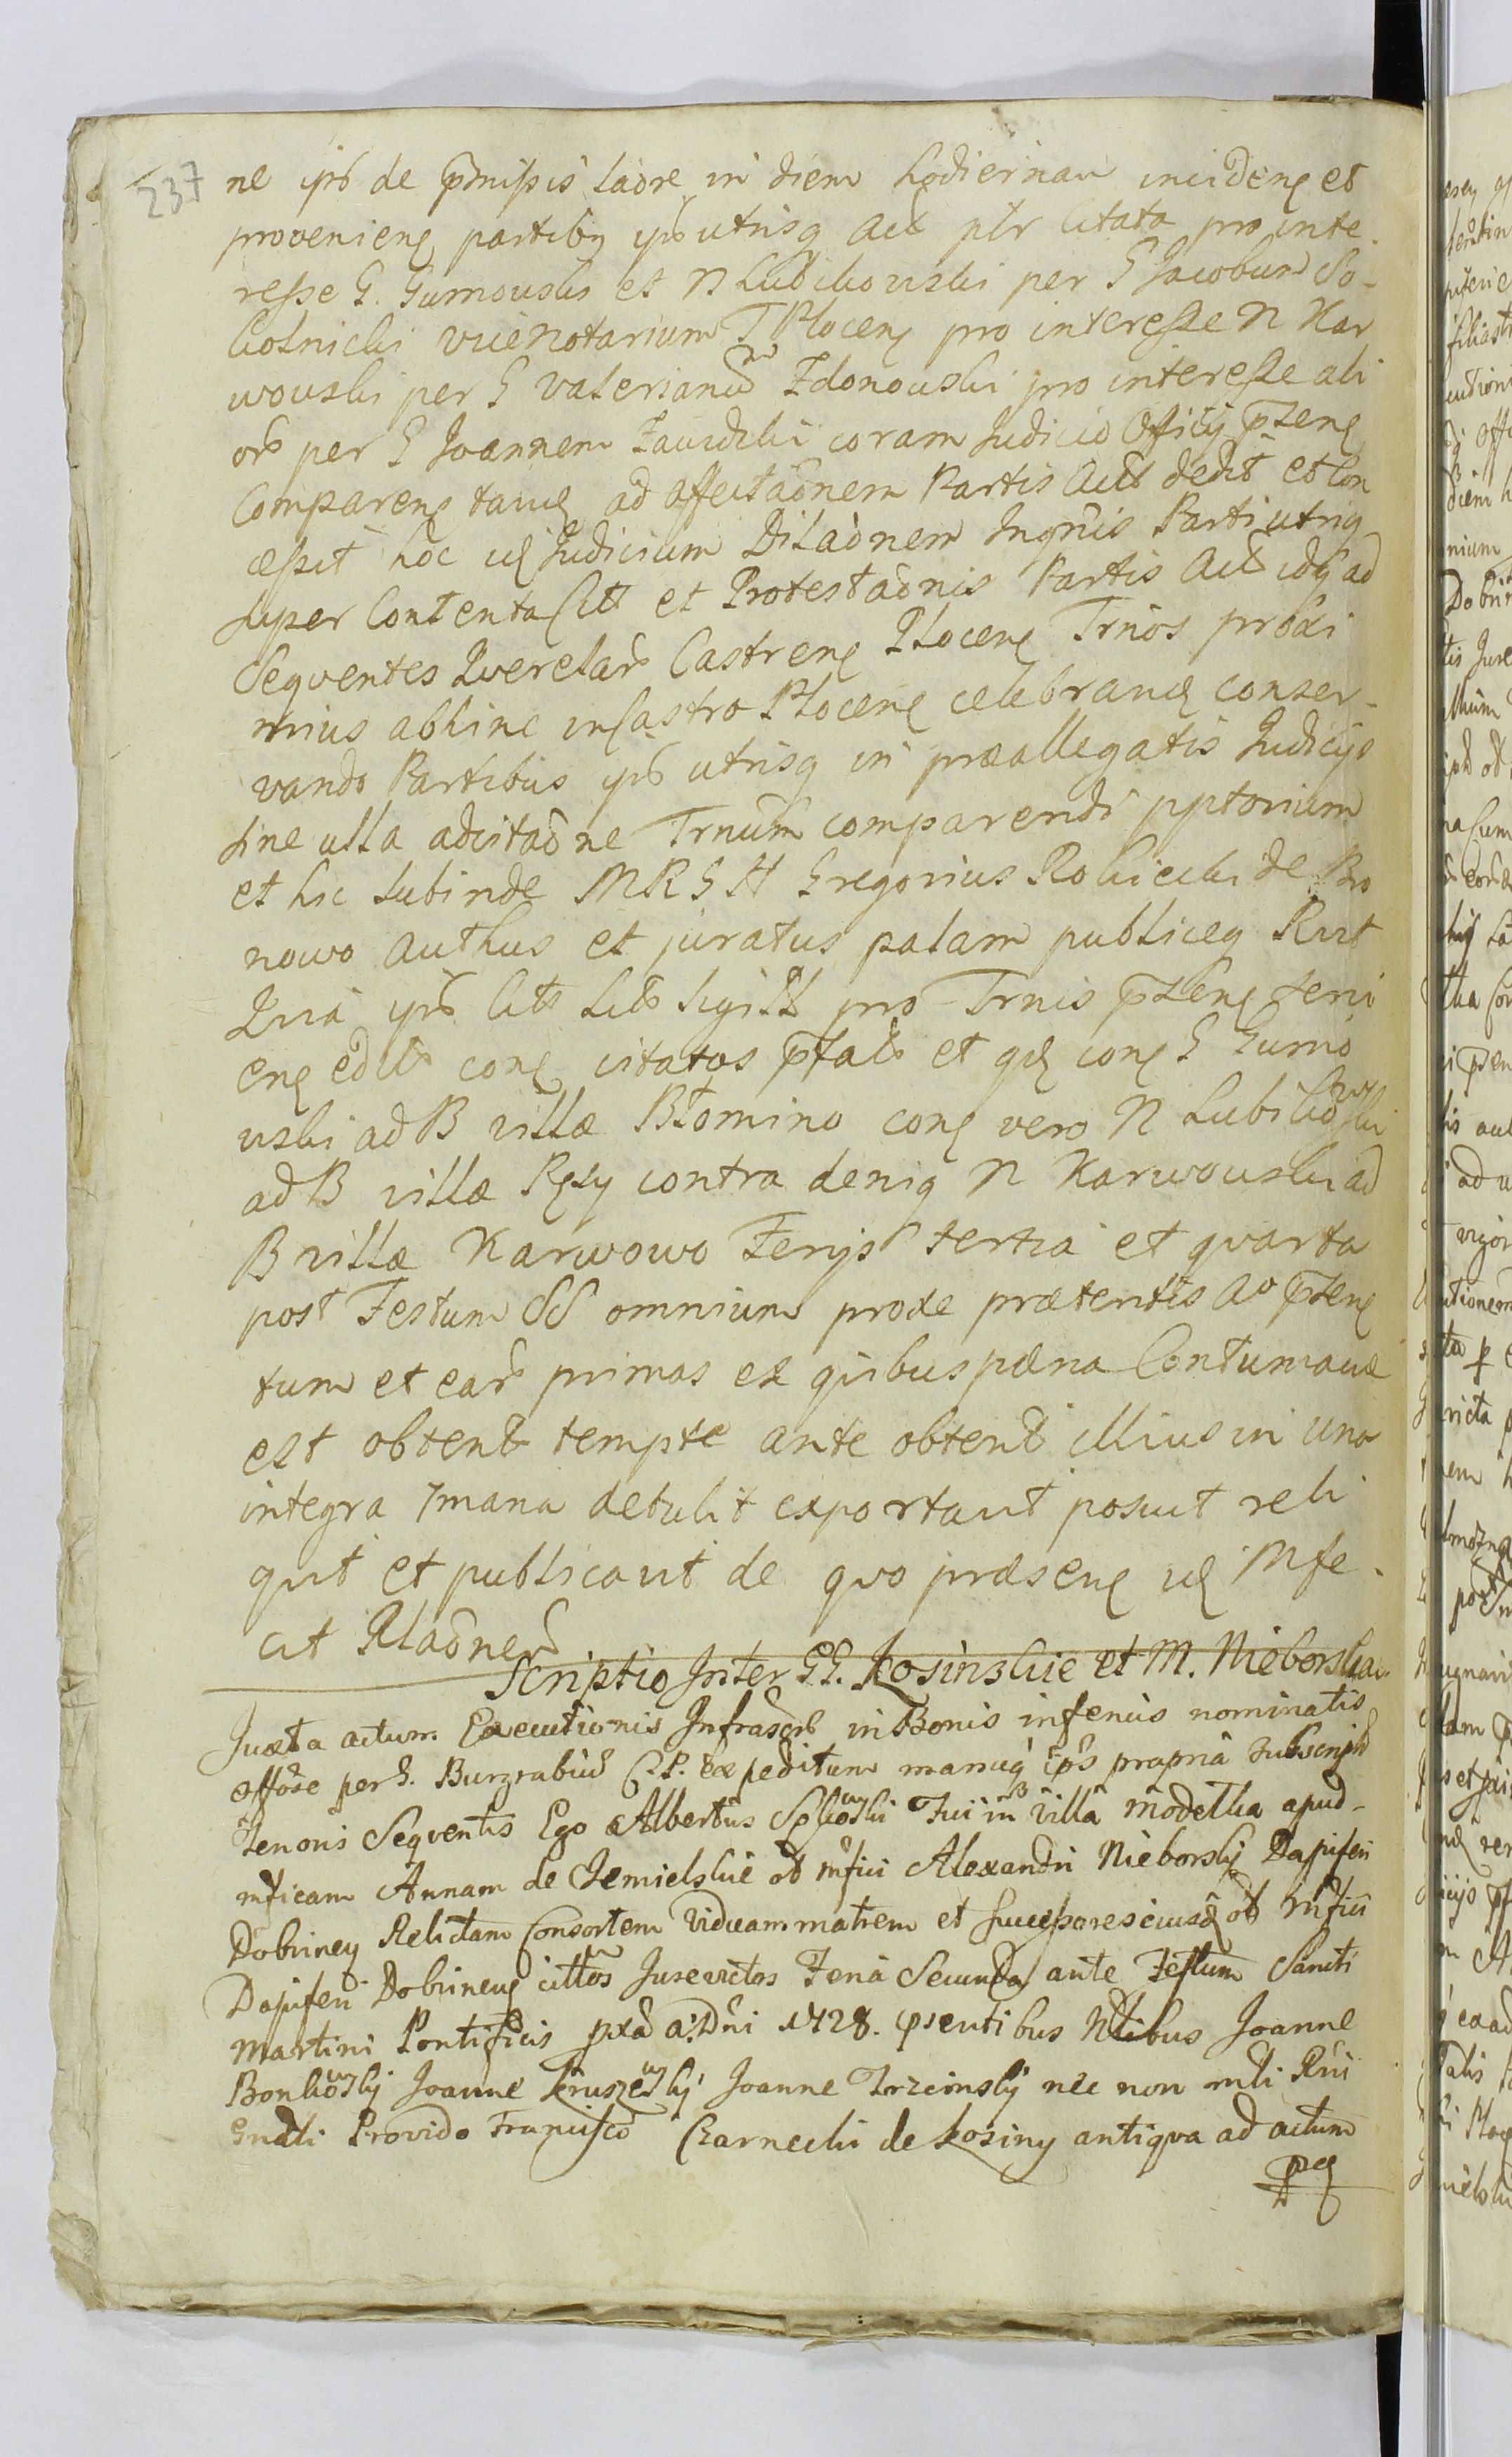 237
ne ipso de pmissis taore in diem hodiernam incideñ et
provenieñ partibq ipis utrisq act ptr citata pro inte-
resse G. Gumowski et N Lubikowski per G Jacobum So-
kolnicki vicenotarium T Ploceñ pro interesse N Kar
wowski per G Valerianum Zdonowski pro interesse ali
ors per G Joannem Zawidzki coram Judicio Officij pseñ
Compareñ ad affectaonem Partis Act dedit et Con
cessit hoc Judicium Dilaonem Inqnis Parti utriq
super Contenta Citt et Protestaonis Partis Act idq ad
Seqventes Qverelar Castreñ Ploceñ Trnos proxi
mius abhinc in Castro Ploceñ celebrand conser-
vando Partibus ipis utrisq in præallegatis Judicijs
sine ulla adcitaone Trnum comparendi pptorium
et hic subinde MRGH Gregorius Rokicki de Bro
nowo authus et juratus palam publiceq Rcit
Qvia ipse Citt Lib sigill pro Trnis pseñ
coñ citatos ptal et qd coñ G Gumo
wski ad B villæ Blomino coñ vero N Lubikowski
ad B villæ Resy contra deniq N Karwowski ad
B villæ Karwowo Ferijs tertia et qvarta
post Festum SS omnium proxe præteritis Ao pseñ
tum et ear primas ex qvibus pœna Contumaciæ
est obtent tempte ante obtent illius in una
integra 7mana detulit exportavit posuit reli
qvit et publicavit de qvo præseñ Mfe-
cit Rlaonem
Scriptio Inter GG. Kosinskie et M. Nieborska
Juxta actum Executionis Infrascrib in Bonis inferius nominatis
offose per G. Burgrabiu C.P. Expeditum manuq eps propria subscript
Tenoris Seqventis Ego Albertus Fui in B villa Modełka apud
mficam Annam de Ziemielskie ol mfici Alexandri Nieborskij Dapiferi
Dobrineñ Relictam Consortem Viduam matrem et successores eiusd ol Mfici
Dapiferi Dobrineñ cittos Jurevictos Feria Secunda ante Festum Sancti
Martini Pontificis pxa a: Dni 1728. psentibus Nlibus Joanne
Bońkowskij Joanne Kruszewskij Joanne Trzcinskij nec non mli Rni
Gndli Provido Francisco Czarnecki de Kosiny antiqva ad actum